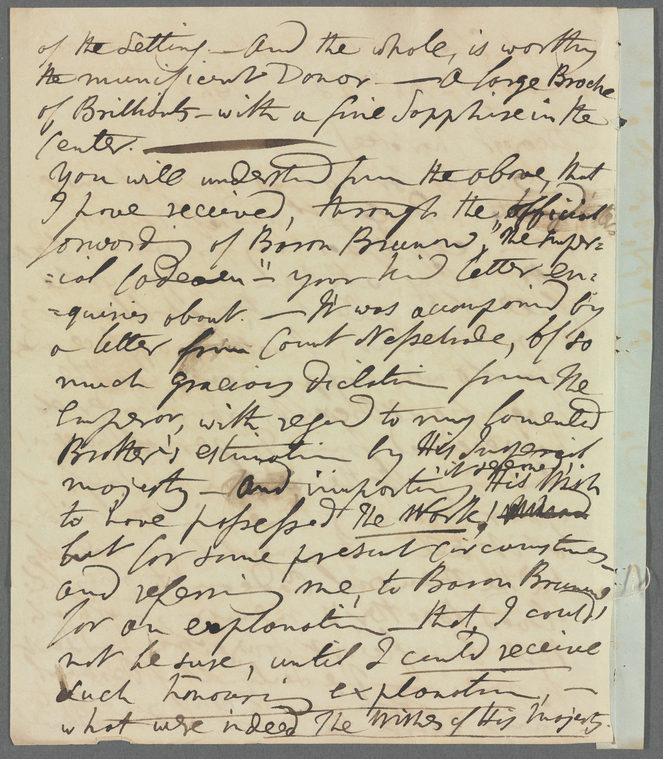 of the Setting — And the whole, is worthy
the munificent Donor — a large Broche
of Brilliants — with a fine Sapphire in the
Center. —
You will understand from the above, that
I have received, through the official
forwarding of Baron Brunow, "the Imper=
=ial Cadeau" — your kind letter en=
=quiries about. — It was accompanied by
a letter from Count Nesselrode, of so
much gracious dictation from the
Emperor, with regard to my lamented
Brother's estimation by His Imperial
majesty — and importing "it seemed," His Wish
to have possessed the Work,
but for some present circumstances —
and referring me, to Baron Brunow
for an explanation — that, I could
not be sure, until I could receive
such honouring explanation, —
what were indeed the Wishes of His Majesty.